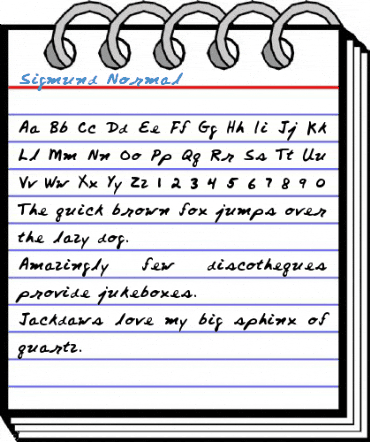 Sigmund Normal
Aa Bb Cc Dd Ee Ff Gg Hh Ii Jj Kk
Ll Mm Nn Oo Pp Qq Rr Ss Tt Uu
Vv Ww Xx Yy Zz 1 2 3 4 5 6 7 8 9 0
The quick brown fox jumps over
the lazy dog.
Amazingly few discotheques
provide jukeboxes.
Jackdaws love my big sphinx of
quartz.